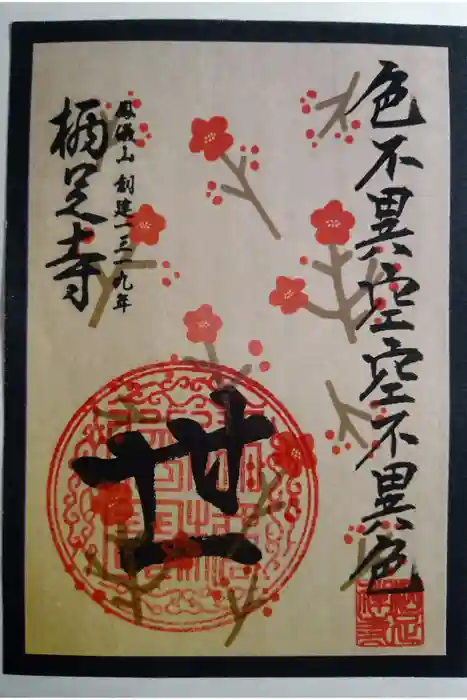 色不異空空不異色
世
鳳儀山 創建一三一九年
栖足寺